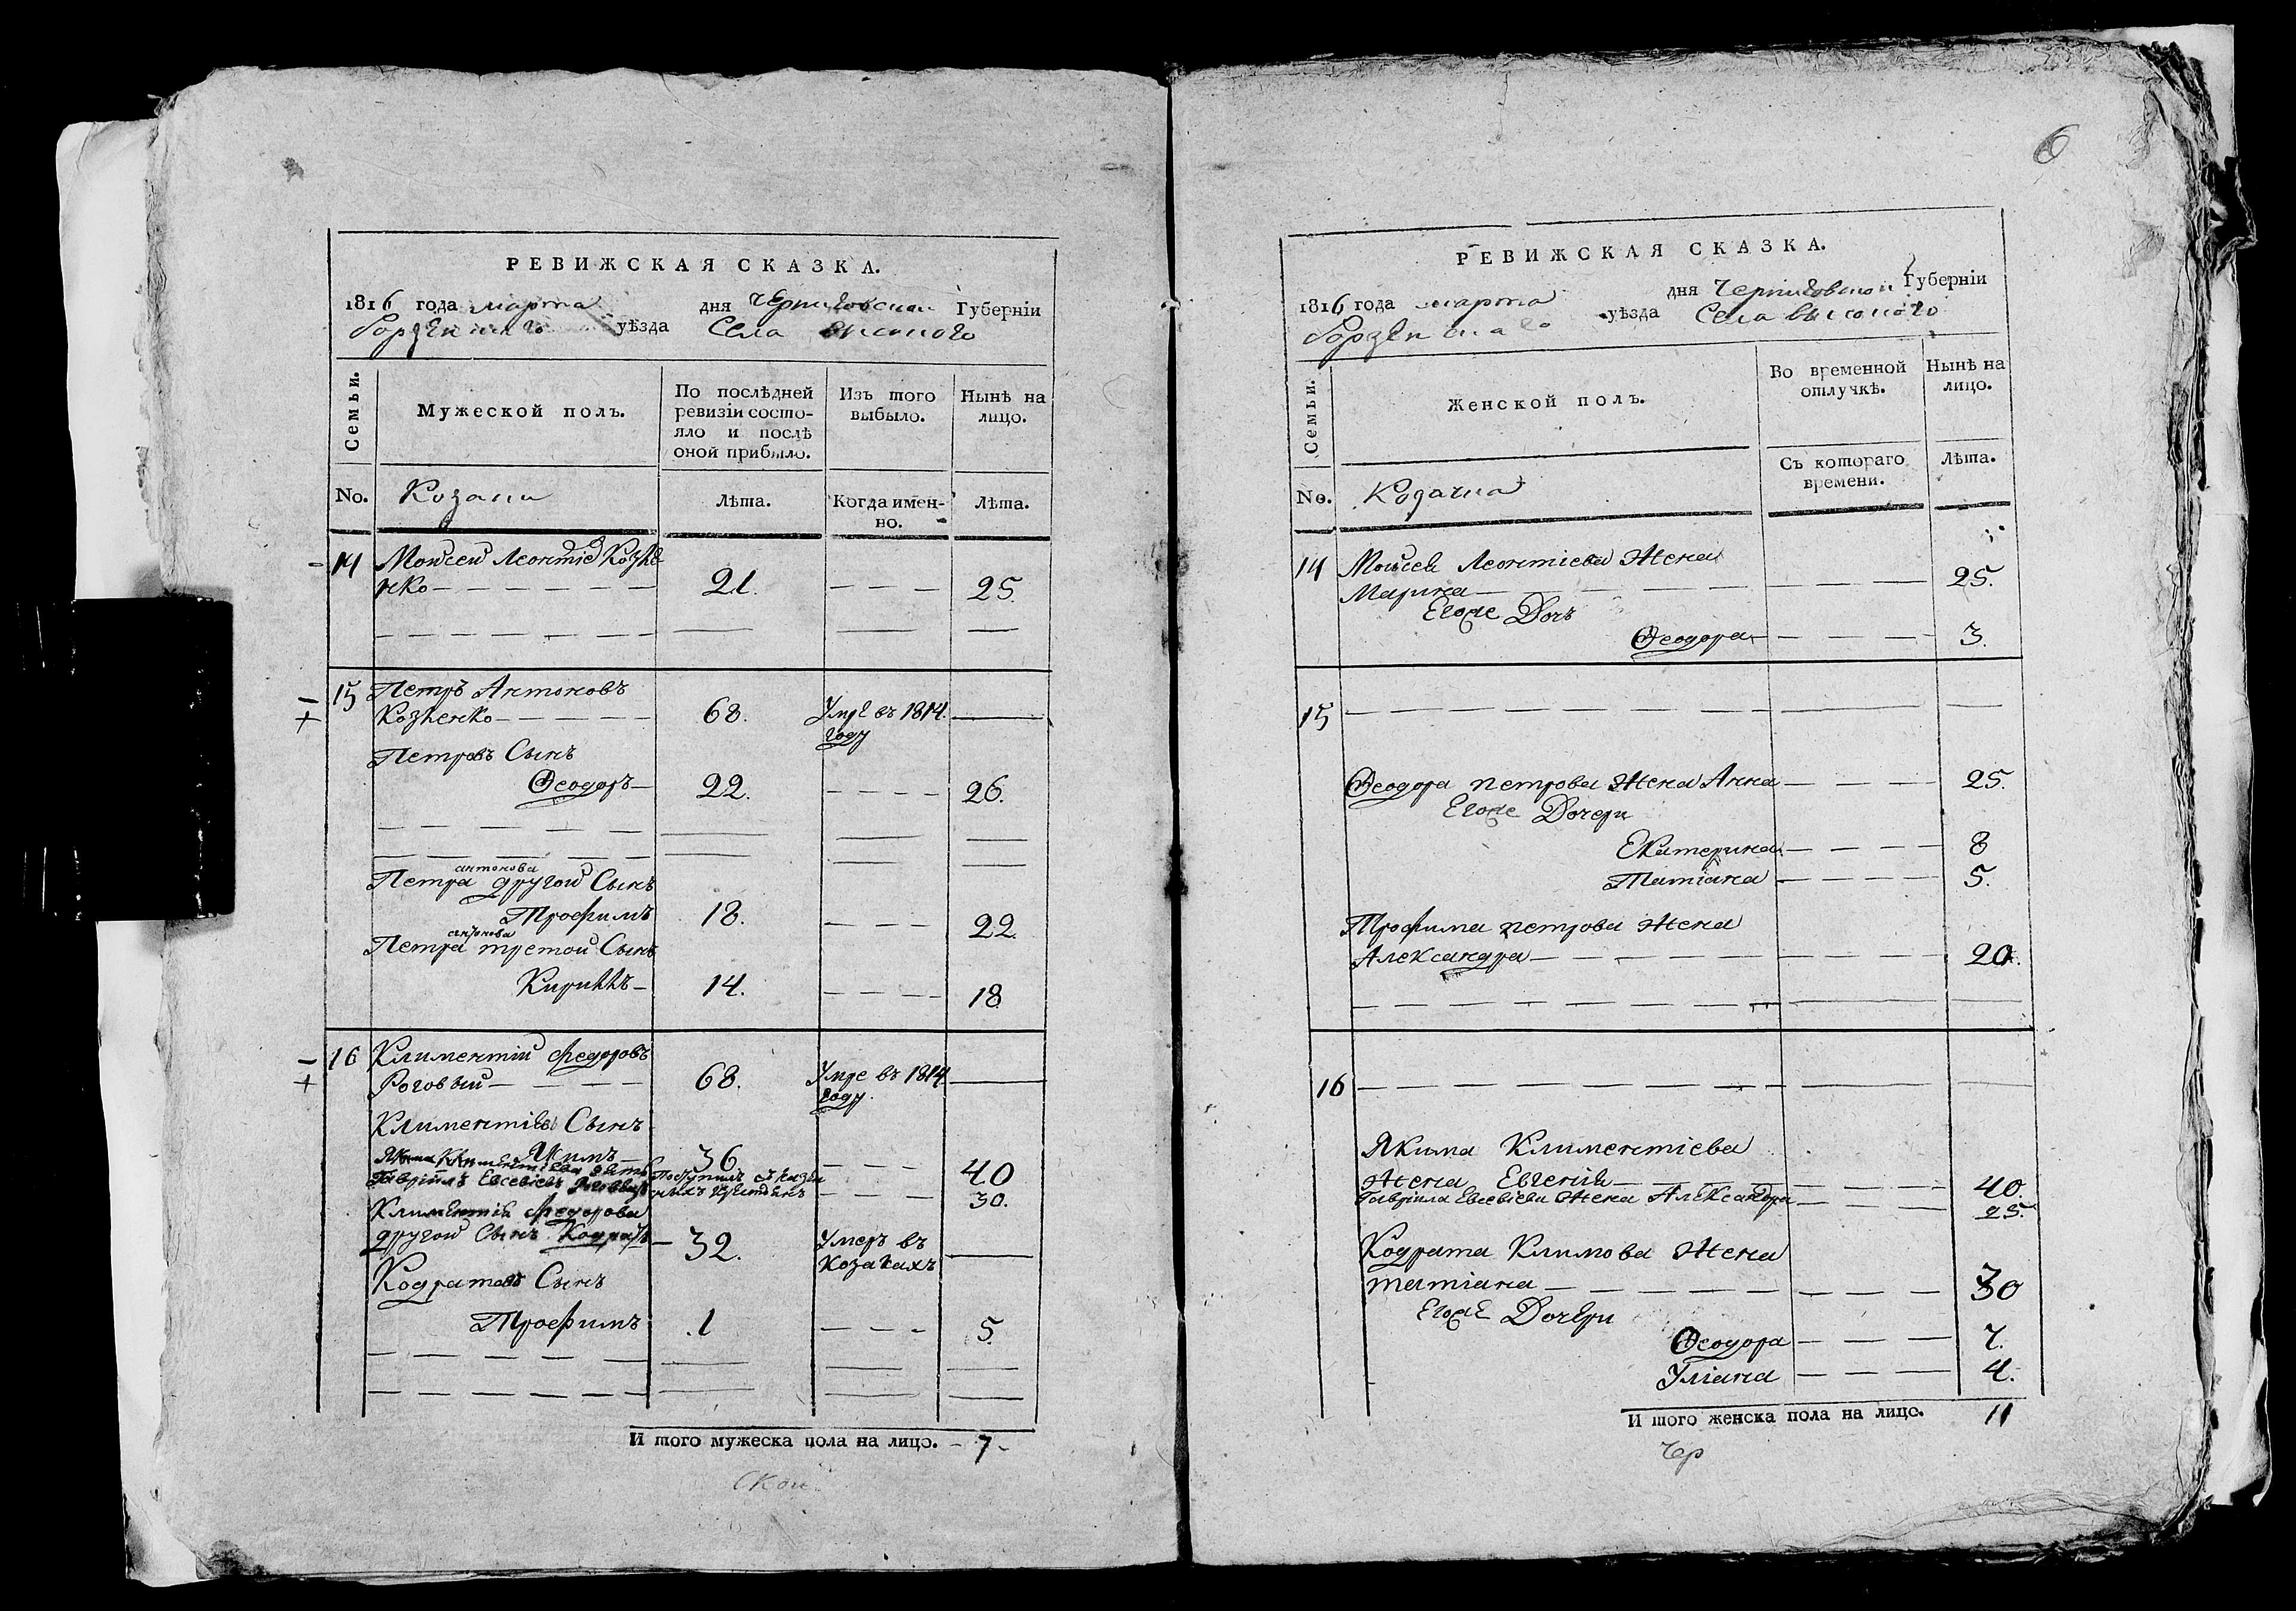 РЕВИЖСКАЯ СКАЗКА.
1816 года марта дня Черниговской Губерніи
уѣзда Села высокого
Семьи.
Мужеской полъ.
По послѣдней ревизіи состо-
яло и послѣ
оной прибыло.
Изъ того
выбыло.
Нынѣ на
лицо.
No.
Козаки
Лѣта.
Когда имен-
но.
Лѣта.
14 Моисей Леонтіев
21. 25.
15 Петръ Антоновъ
68. Умре въ 1814.
году
Петровъ Сынъ
Ѳеодоръ 22. 26.
антонова
Петра другой Сынъ
Трофимъ 18. 22.
антонова
Петра третой Сынъ
14. 18
16 Климентій Федоровъ
Роговый 68. Умре въ 1814
году.
Климентіевъ Сынъ
Якимъ 36 40
Гавріилъ Евсевіевъ
30.
Климентія Федорова
другой Сынъ Кодратъ 32. Умеръ въ
Козакахъ
Кодратовъ Сынъ
Трофимъ 1 5.
И того мужеска пола на лицо. 7
6
РЕВИЖСКАЯ СКАЗКА.
1816 года марта дня Черниговской Губерніи
уѣзда Села высокого
Семьи.
Женской полъ.
Во временной
отлучкѣ.
Нынѣ на
лицо.
Съ котораго
времени.
Лѣта.
No.
14 Моисея Леонтіева Жена
Марина 25.
Егоже Дочь
Ѳеодора 3.
15
Ѳеодора петрова Жена Анна 25.
Егоже Дочери
Екатерина 8
Татіана 5.
Трофима петрова Жена
Александра 20.
16
Якима Климентіева
Жена Евгенія 40.
Гавріила Евсевіева Жена Александра 25.
Кодрата Климова Жена
татіана 30
Егоже Дочери
Ѳеодора 7.
Уліана 4.
И того женска пола на лицо. 11
Чер